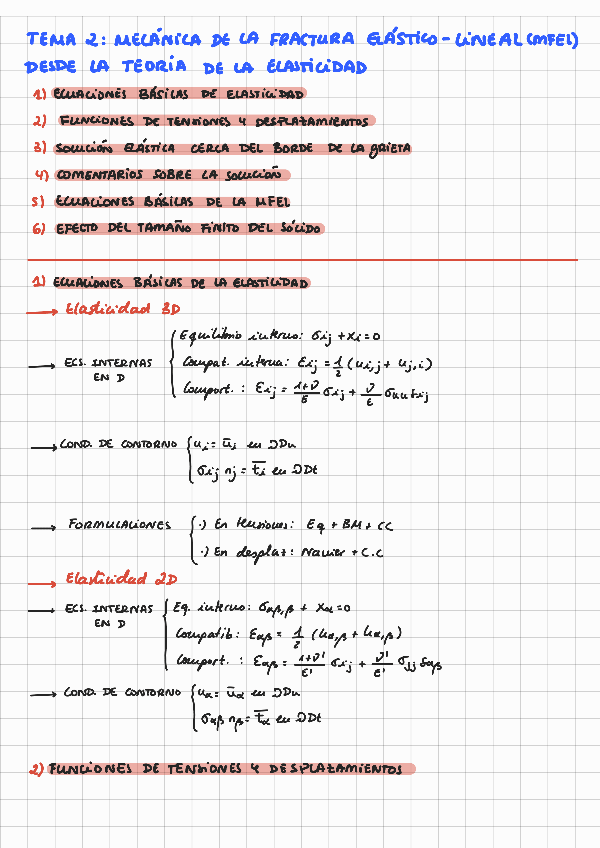 TEMA 2: MECÁNICA DE LA FRACTURA ELÁSTICO-LINEAL (MFEL)
DESDE LA TEORÍA DE LA ELASTICIDAD
1) ECUACIONES BÁSICAS DE ELASTICIDAD
2) FUNCIONES DE TENSIONES Y DESPLAZAMIENTOS
3) SOLUCIÓN ELÁSTICA CERCA DEL BORDE DE LA GRIETA
4) COMENTARIOS SOBRE LA SOLUCIÓN
5) ECUACIONES BÁSICAS DE LA MFEL
6) EFECTO DEL TAMAÑO FINITO DEL SÓLIDO
1) ECUACIONES BÁSICAS DE LA ELASTICIDAD
→ Elasticidad 3D
→ ECS. INTERNAS EN D
Equilibrio interno: σij + Xi = 0
Compat. interna: εij = 1/2 (ui,j + uj,i)
Comport. : εij = (1+ν)/E σij + ν/E σkk δij
→ COND. DE CONTORNO
ui = ūi en ∂Du
σij nj = t̄i en ∂Dt
→ FORMULACIONES
·) En tensiones: Eq + BM + CC
·) En desplaz: Navier + C.C
→ Elasticidad 2D
→ ECS. INTERNAS EN D
Eq. interno: σαβ,β + Xα = 0
Compatib: εαβ = 1/2 (uα,β + uα,β)
Comport. : εαβ = (1+ν')/E' σij + ν'/E' σjj δαβ
→ COND. DE CONTORNO
uα = ūα en ∂Du
σαβ nβ = t̄α en ∂Dt
2) FUNCIONES DE TENSIONES Y DESPLAZAMIENTOS